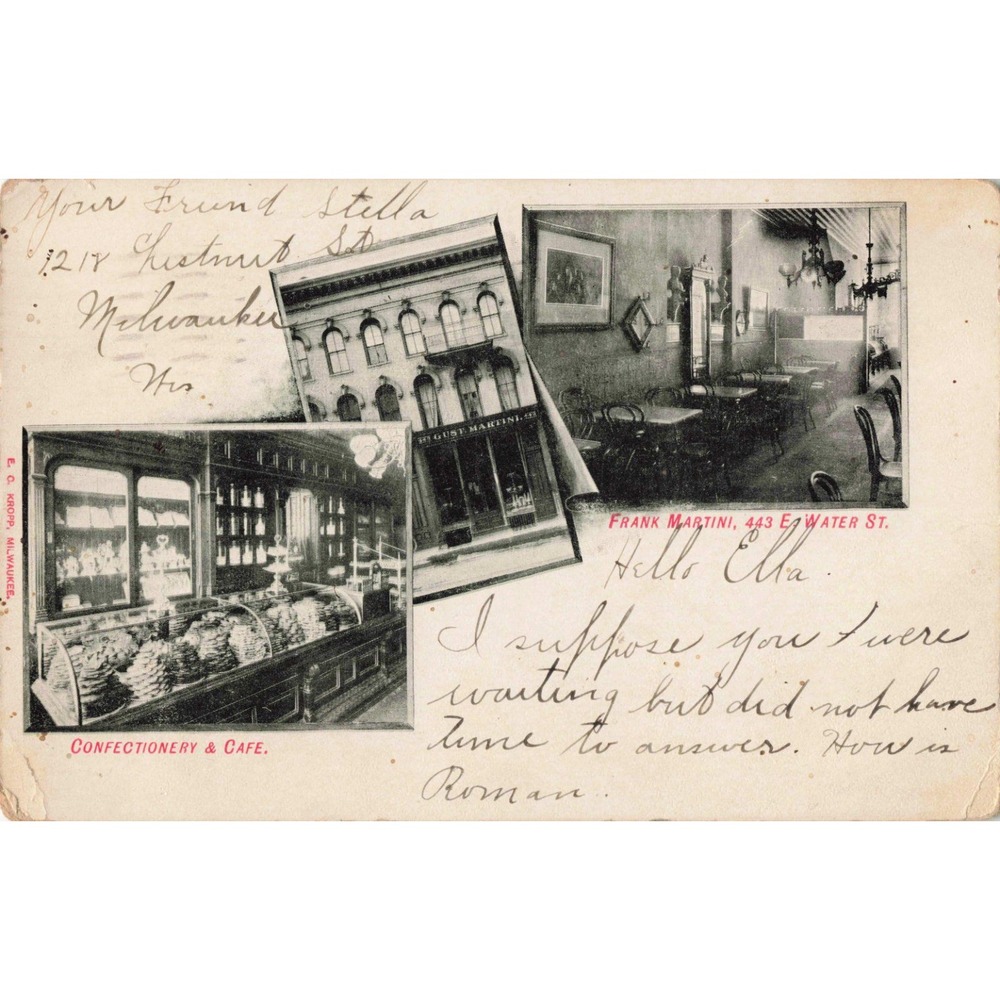 Your Friend Stella
1218 Chestnut St
Milwaukee
Wis
GUST. MARTINI.
FRANK MARTINI, 443 E. WATER ST.
CONFECTIONERY & CAFE.
E. C. KROPP, MILWAUKEE.
Hello Ella.
I suppose you were
waiting but did not have
time to answer. How is
Roman.